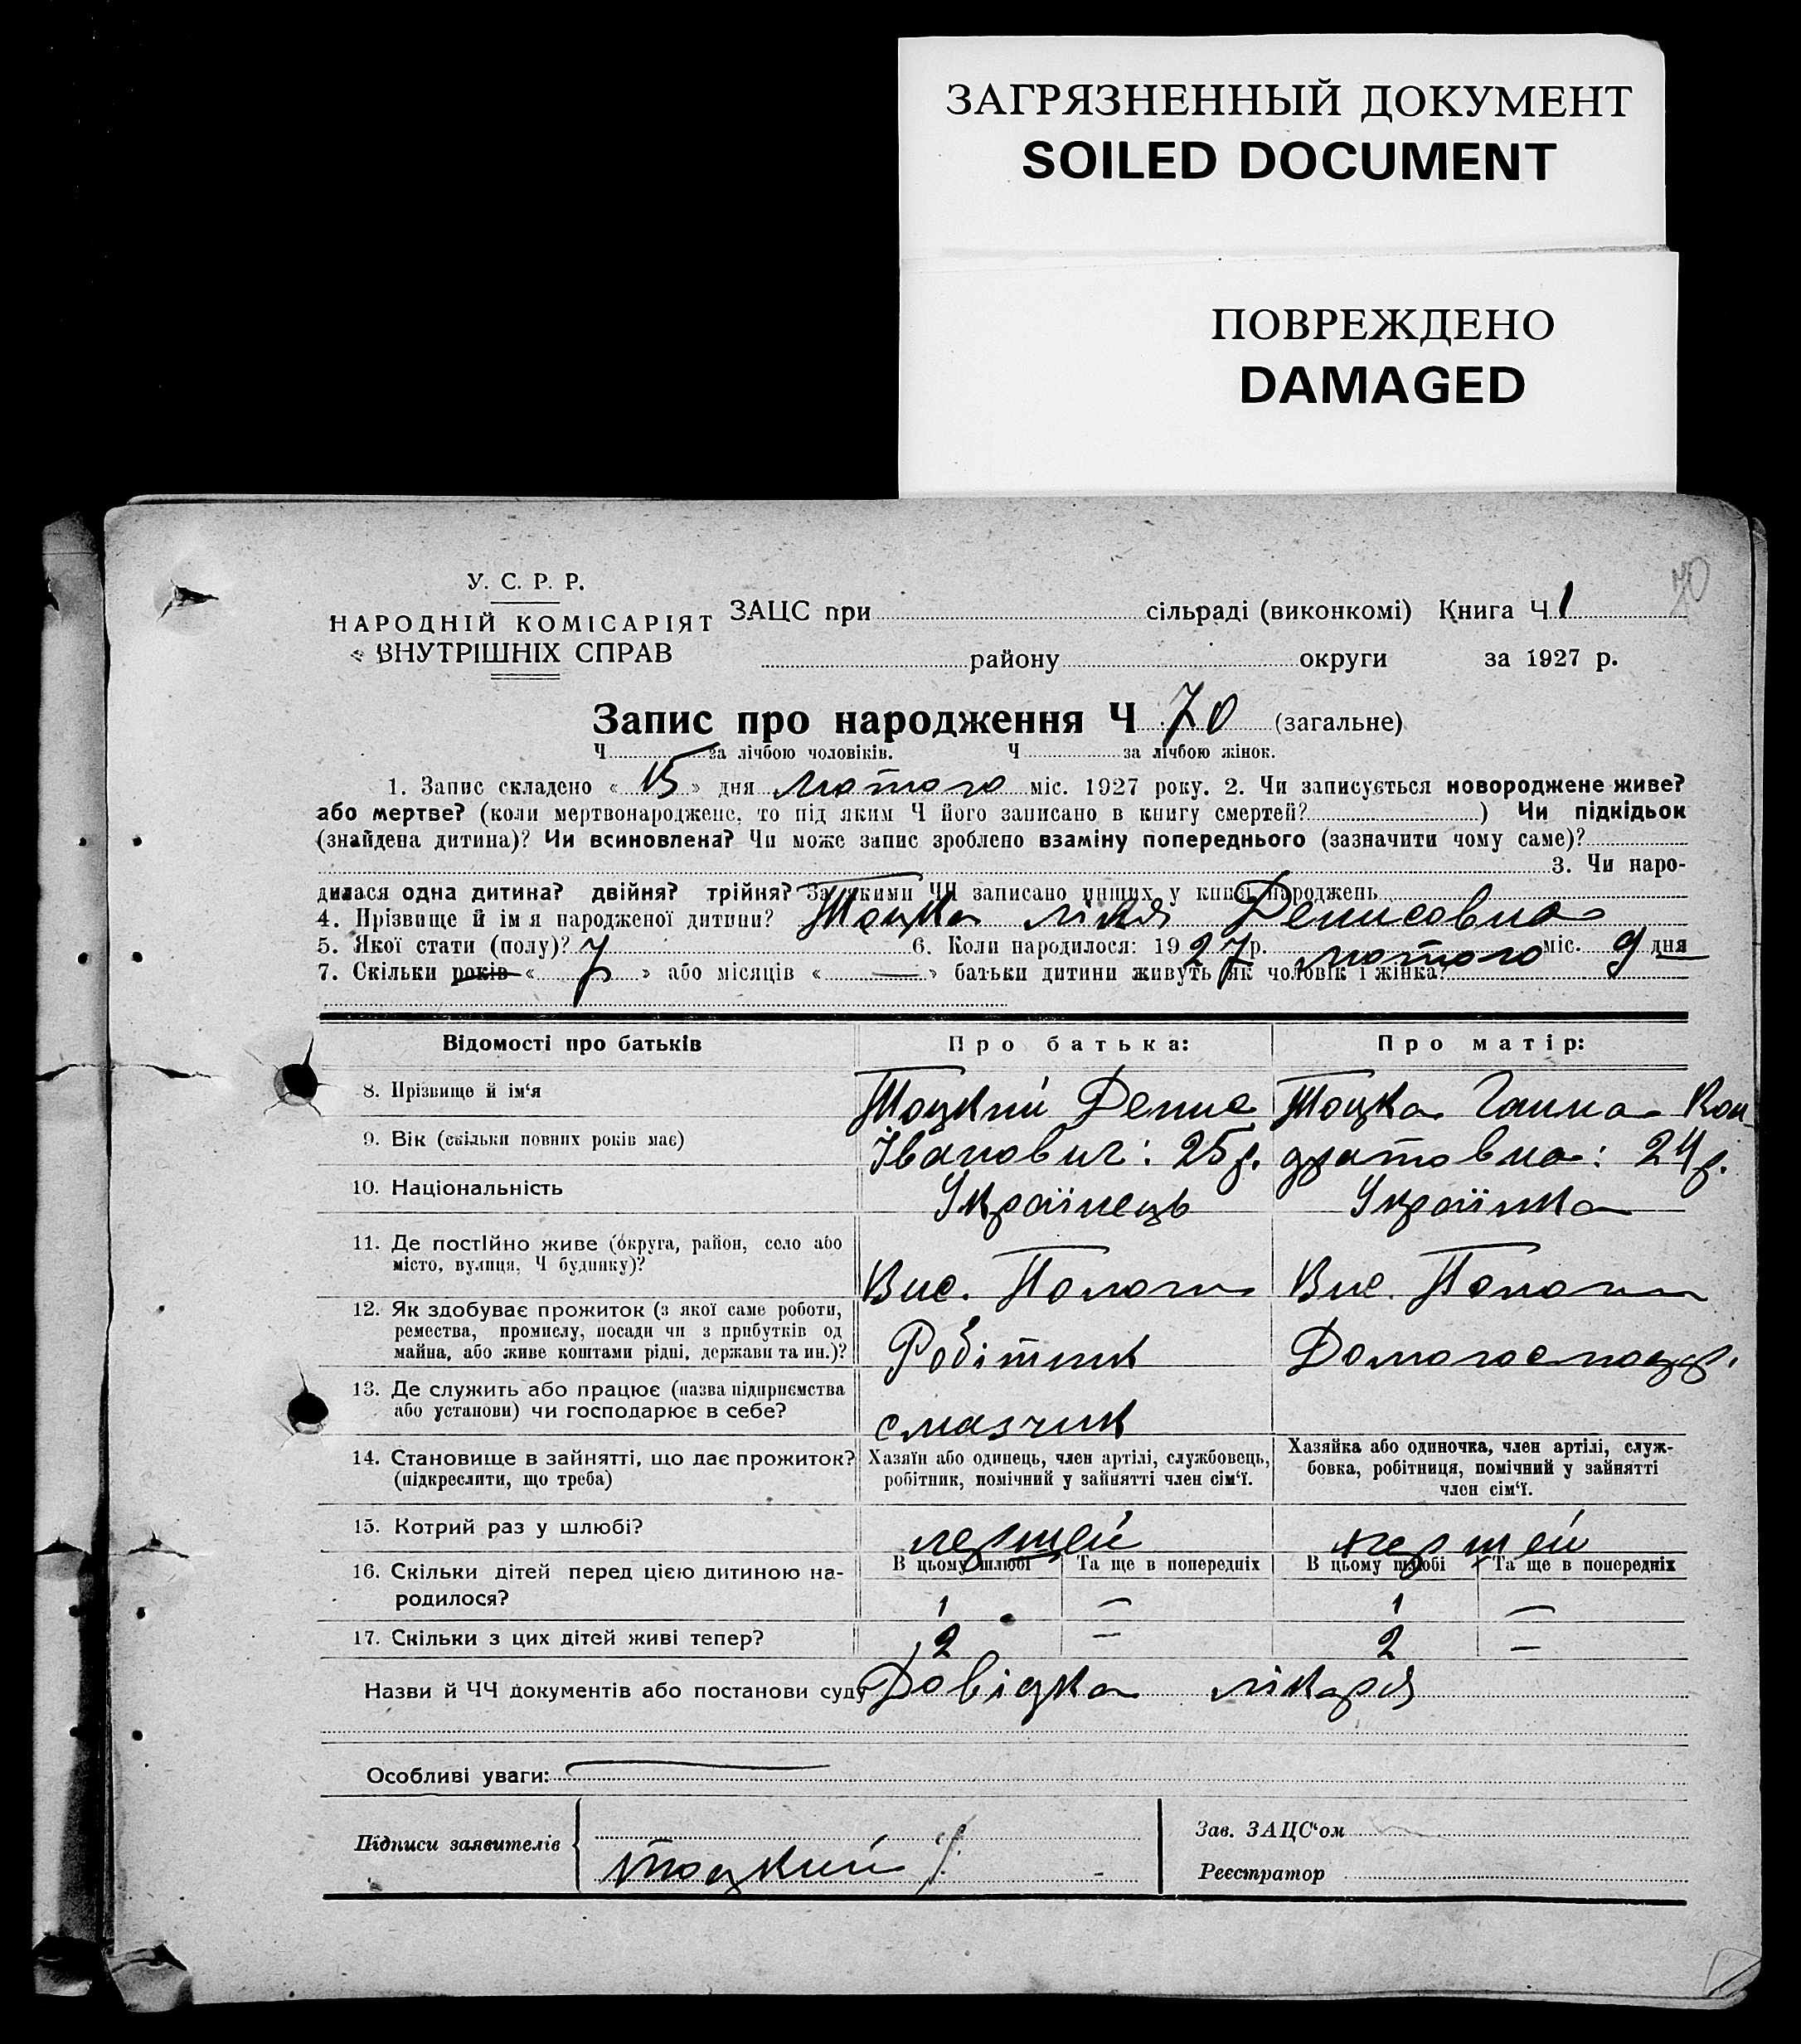 ЗАГРЯЗНЕННЫЙ ДОКУМЕНТ
SOILED DOCUMENT
ПОВРЕЖДЕНО
DAMAGED
70
У. С. Р. Р.
НАРОДНІЙ КОМІСАРІЯТ
ВНУТРІШНІХ СПРАВ
ЗАЦС при сільраді (виконкомі) Книга Ч 1
району округи за 1927 р.
Запис про народження Ч 70 (загальне)
Ч за лічбою чоловіків. Ч за лічбою жінок.
1. Запис складено « 15 » дня лютого міс. 1927 року. 2. Чи записується новороджене живе?
або мертве? (коли мертвонароджене, то під яким Ч його записано в книгу смертей? ) Чи підкідьок
(знайдена дитина)? Чи всиновлена? Чи може запис зроблено взаміну попереднього (зазначити чому саме)?
3. Чи наро-
дилася одна дитина? двійня? трійня? За якими ЧЧ записано инших у книзі народжень
4. Прізвище й ім'я народженої дитини? Тоцка Лідя Денисовна
5. Якої стати (полу)? 6. Коли народилося: 1927 р. лютого міс. 9 дня
7. Скільки років « » або місяців « — » батьки дитини живуть як чоловік і жінка?
Відомості про батьків
Про батька:
Про матір:
8. Прізвище й ім'я
Тоцкий Денис
Тоцка Ганна Кон-
9. Вік (скільки повних років має)
Іванович: 25 р.
дратовна: 24 р.
10. Національність
Українець
Українка
11. Де постійно живе (округа, район, село або
місто, вулиця, Ч будинку)?
Вис. Пологи
Вис. Пологи
12. Як здобуває прожиток (з якої саме роботи,
ремества, промислу, посади чи з прибутків од
майна, або живе коштами рідні, держави та ин.)?
Робітник
Домогосподр.
13. Де служить або працює (назва підприємства
або установи) чи господарює в себе?
смазчик
14. Становище в зайнятті, що дає прожиток?
(підкреслити, що треба)
Хазяїн або одинець, член артілі, службовець,
робітник, помічний у зайнятті член сім'ї.
Хазяйка або одиночка, член артілі, служ-
бовка, робітниця, помічний у зайнятті
член сім'ї.
15. Котрий раз у шлюбі?
першей
першей
16. Скільки дітей перед цією дитиною на-
родилося?
В цьому шлюбі Та ще в попередніх В цьому шлюбі Та ще в попередніх
1 — 1 —
17. Скільки з цих дітей живі тепер?
2 — 2 —
Назви й ЧЧ документів або постанови суду Довідка лікаря
Особливі уваги:
Підписи заявителів
Тоцкий
Зав. ЗАЦС'ом
Реєстратор